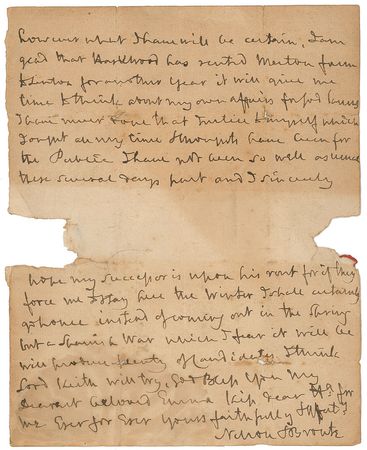 however what I have will be certain, I am
glad that Haslewood has rented Merton farm
to Linton for another Year it will give me
time to think about my own affairs for God knows
I have never done that Justice to myself which
I ought all my time & thoughts have been for
the Public I have not been so well as usual
these several days past and I sincerely
hope my successor is upon his rout for if they
force me to stay here the Winter I shall certainly
go home instead of coming out in the Spring
but a Spanish War which I fear it will be
will produce plenty of Candidates I think
Lord Keith will try, God Bless You My
dearest beloved Emma Kiss dear Ha for
me Ever for Ever Yours faithfully
Nelson & Bronte